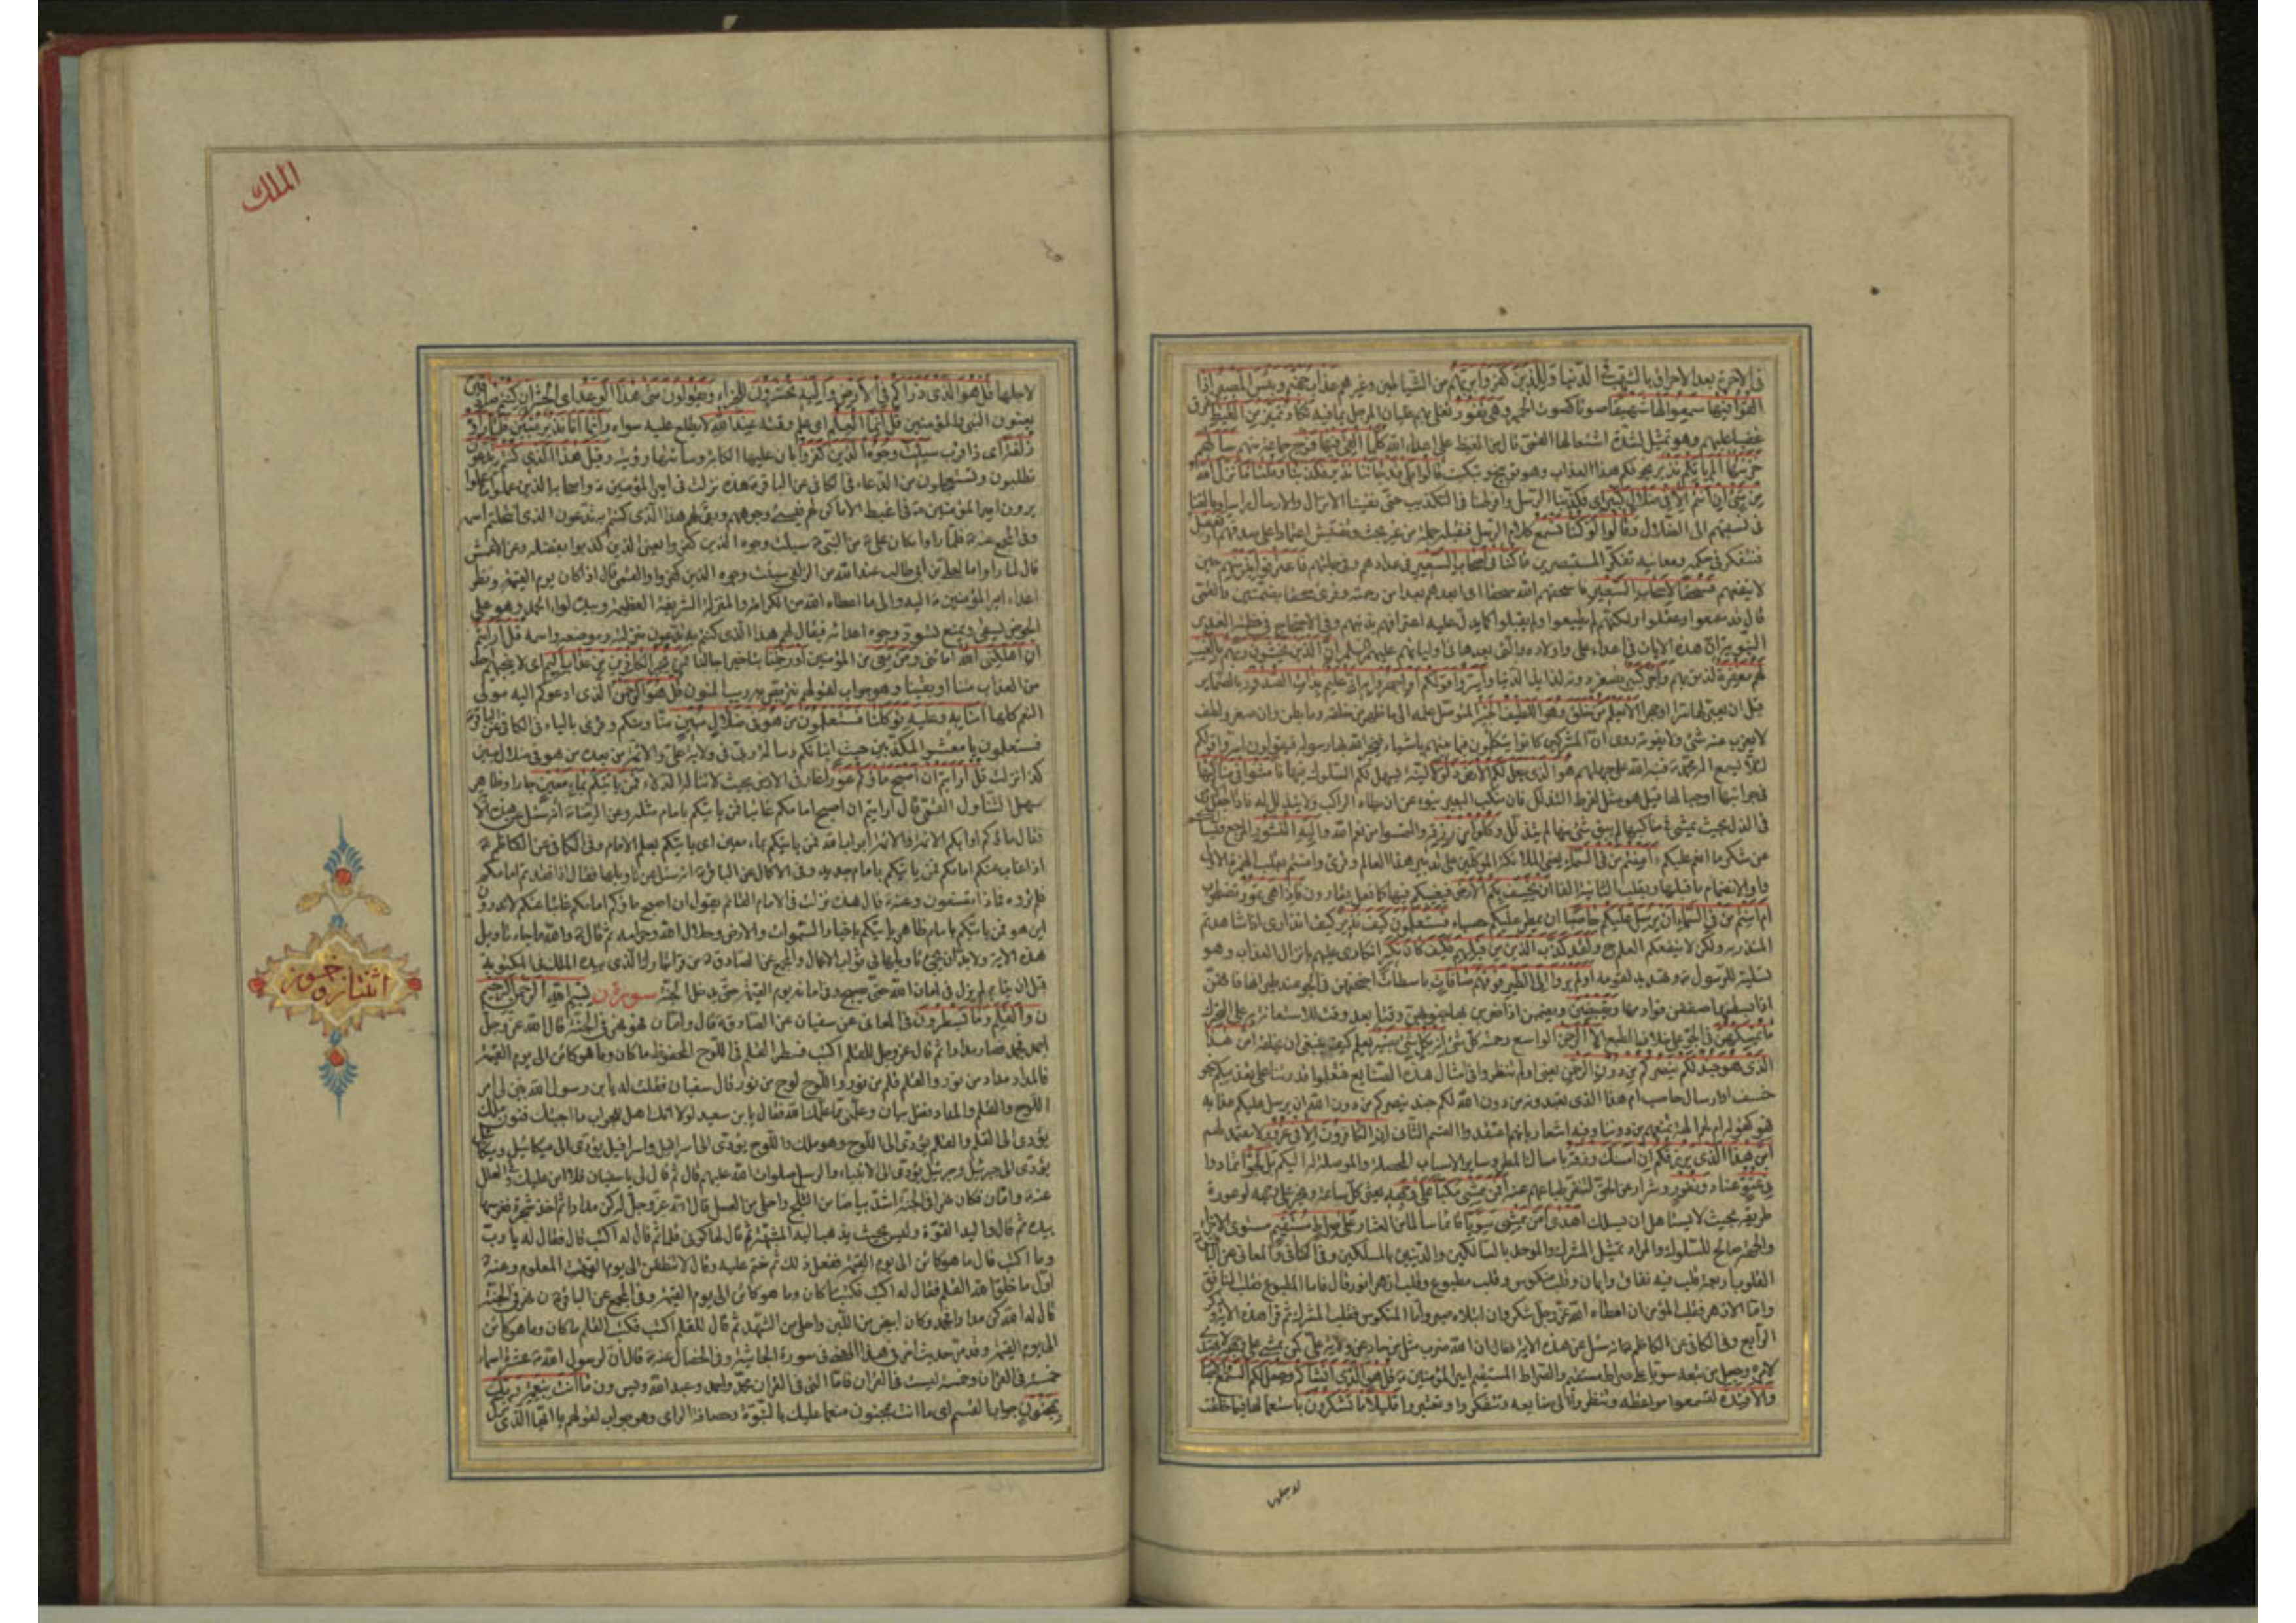 في الاخرة بعد الاحراق بالشهب في الدنيا وللذين كفروا بربهم من الشياطين وغيرهم عذاب جهنم وبئس المصير اذا
القوا فيها سمعوا لها شهيقا صوتا كصوت الحمير وهي تفور تغلي بهم غليان المرجل بما فيه تكاد تميز من الغيظ تتفرق
غضبا عليهم وهو تمثيل لشدة اشتعالها القمي قال من الغيظ على اعداء الله كلما القي فيها فوج جماعة منهم سالهم
خزنتها الم ياتكم نذير يخوفكم هذا العذاب وهو توبيخ وتبكيت قالوا بلى قد جاءنا نذير فكذبنا وقلنا ما نزل الله
من شئ ان انتم الا في ضلال كبير اي فكذبنا الرسل وافرطنا في التكذيب حتى نفينا الانزال والارسال راسا وبالغنا
في نسبتهم الى الضلال وقالوا لو كنا نسمع كلام الرسل فنقبله جملة من غير بحث وتفتيش اعتمادا على صدقهم او نعقل
فنتفكر في حكمه ومعانيه تفكر المستبصرين ما كنا في اصحاب السعير في عدادهم وفي جملتهم فاعترفوا بذنبهم حين
لا ينفعهم فسحقا لاصحاب السعير فاسحقهم الله سحقا اي ابعدهم بعدا من رحمته وقرئ سحقا بضمتين والقمي
قال قد سمعوا وعقلوا ولكنهم لم يطيعوا ولم يقبلوا كما يدل عليه اعترافهم بذنبهم وفي الاحتجاج في خطبة الغدير
النبوية ان هذه الايات في اعداء علي واولاده والتي بعدها في اوليائهم عليهم السلم ان الذين يخشون ربهم بالغيب
لهم مغفرة لذنوبهم واجر كبير يصغر دونه لذايذ الدنيا واسروا قولكم او اجهروا به انه عليم بذات الصدور بالضماير
قبل ان يعبر بها سرا او جهرا الا يعلم من خلق وهو اللطيف الخبير المتوصل علمه الى ما ظهر من خلقه وما بطن وان صغر ولطف
لا يعزب عنه شئ ولا يفوته روي ان المشركين كانوا يتكلمون فيما بينهم باشياء فيخبر الله بها رسوله فيقولون اسروا قولكم
لئلا يسمع اله محمد فنبه الله على جهلهم هو الذي جعل لكم الارض ذلولا لينة ليسهل لكم السلوك فيها فامشوا في مناكبها
في جوانبها او جبالها قيل هو مثل لفرط التذلل فان منكب البعير ينبو عن ان يطاه الراكب ولا يتذلل له فاذا جعل الارض
في الذل بحيث يمشى في مناكبها لم يبق شئ منها لم يتذلل وكلوا من رزقه والتمسوا من نعم الله واليه النشور المرجع فيسالكم
عن شكر ما انعم عليكم ءامنتم من في السماء يعني الملائكة الموكلين على تدبير هذا العالم وقرئ وامنتم بقلب الهمزة الاولى
واوا لانضمام ما قبلها وبقلب الثانية الفا ان يخسف بكم الارض فيغيبكم فيها كما فعل بقارون فاذا هي تمور تضطرب
ام امنتم من في السماء ان يرسل عليكم حاصبا ان يمطر عليكم حصباء فستعلمون كيف نذير كيف انذاري اذا شاهدتم
المنذر به ولكن لا ينفعكم العلم ح ولقد كذب الذين من قبلهم فكيف كان نكير انكاري عليهم بانزال العذاب وهو
تسلية للرسول وتهديد لقومه اولم يروا الى الطير فوقهم صافات باسطات اجنحتهن في الجو عند طيرانها فانهن
اذا بسطنها صففن قوادمها ويقبضن ويضممن اذا ضربن بها جنوبهن وقتا بعد وقت للاستعانة به على التحرك
ما يمسكهن في الجو على خلاف الطبع الا الرحمن الواسع رحمته كل شئ انه بكل شئ بصير يعلم كيف ينبغي ان يخلقه امن هذا
الذي هو جند لكم ينصركم من دون الرحمن يعني اولم تنظروا في امثال هذه الصنايع فتعلموا قدرتنا على تعذيبكم بنحو
خسف او ارسال حاصب ام هذا الذي تعبدونه من دون الله لكم جند ينصركم من دون الله ان يرسل عليكم عذابه
فهو كقوله ام لهم الهة تمنعهم من دوننا وفيه اشعار بانهم اعتقدوا القسم الثاني ان الكافرون الا في غرور لا معتمد لهم
امن هذا الذي يرزقكم ان امسك رزقه بامساك المطر وساير الاسباب المحصلة والموصلة له اليكم بل لجوا تمادوا
في عتو عناد ونفور وشراد عن الحق لتنفر طباعهم عنه افمن يمشي مكبا على وجهه يعثر كل ساعة ويخر على وجهه لوعورة
طريقه بحيث لا يستاهل ان يسلك اهدى امن يمشي سويا قائما سالما من العثار على صراط مستقيم مستوي الاجزاء
والجهة صالح للسلوك والمراد تمثيل المشرك والموحد بالسالكين والدينين بالمسلكين وفي الكافي والمعاني عن الباقر
القلوب اربعة قلب فيه نفاق وايمان وقلب منكوس وقلب مطبوع وقلب ازهر انور قال فاما المطبوع فقلب المنافق
واما الازهر فقلب المؤمن ان اعطاه الله عز وجل شكر وان ابتلاه صبر واما المنكوس فقلب المشرك ثم قرا هذه الاية وذكر
الرابع وفي الكافي عن الكاظم انه سئل عن هذه الاية فقال ان الله ضرب مثل من حاد عن ولاية علي كمن يمشي على وجهه لا يهتدي
لامره وجعل من تبعه سويا على صراط مستقيم والصراط المستقيم امير المؤمنين قل هو الذي انشاكم وجعل لكم السمع
والافئدة لتسمعوا مواعظه وتنظروا الى صنايعه وتتفكروا وتعتبروا قليلا ما تشكرون باستعمالها فيما خلقت
لاجلها
الملك
لاجلها قل هو الذي ذراكم في الارض واليه تحشرون للجزاء ويقولون متى هذا الوعد اي الحشر ان كنتم صادقين
يعنون النبي والمؤمنين قل انما العلم اي علم وقته عند الله لا يطلع عليه سواه وانما انا نذير مبين فلما راوه
زلفة اي ذا قرب سيئت وجوه الذين كفروا بان عليها الكابة وساءتها رؤيته وقيل هذا الذي كنتم به تدعون
تطلبون وتستعجلون من الدعاء في الكافي عن الباقر هذه نزلت في امير المؤمنين واصحابه الذين عملوا ما عملوا
يرون امير المؤمنين في اغبط الاماكن لهم فيسئ وجوههم ويقال لهم هذا الذي كنتم به تدعون الذي انتحلتم اسمه
وفي المجمع عنه فلما راوا مكان علي من النبي سيئت وجوه الذين كفروا يعني الذين كذبوا بفضله وعن الاعمش
قال لما راوا ما لعلي بن ابي طالب عند الله من الزلفى سيئت وجوه الذين كفروا والقمي قال اذا كان يوم القيمة ونظر
اعداء امير المؤمنين اليه والى ما اعطاه الله من الكرامة والمنزلة الشريفة العظيمة وبيده لواء الحمد وهو على
الحوض يسقي ويمنع تسود وجوه اعدائه فيقال لهم هذا الذي كنتم به تدعون منزلته وموضعه واسمه قل ارايتم
ان اهلكني الله اماتني ومن معي من المؤمنين او رحمنا بتاخير اجالنا فمن يجير الكافرين من عذاب اليم اي لا ينجيهم احد
من العذاب متنا او بقينا وهو جواب لقولهم نتربص به ريب المنون قل هو الرحمن الذي ادعوكم اليه مولى
النعم كلها امنا به وعليه توكلنا فستعلمون من هو في ضلال مبين منا ومنكم وقرئ بالياء في الكافي عن الباقر
فستعلمون يا معشر المكذبين حيث انباتكم رسالة ربي في ولاية علي والائمة من بعده من هو في ضلال مبين
كذا نزلت قل ارايتم ان اصبح ماؤكم غورا غائرا في الارض بحيث لا تناله الدلاء فمن ياتيكم بماء معين جار او ظاهر
سهل التناول القمي قال ارايتم ان اصبح امامكم غائبا فمن ياتيكم بامام مثله وعن الرضا انه سئل عن هذه الاية
فقال ماؤكم ابوابكم الائمة والائمة ابواب الله فمن ياتيكم بماء معين اي ياتيكم بعلم الامام وفي الكافي عن الكاظم
اذا غاب عنكم امامكم فمن ياتيكم بامام جديد وفي الاكمال عن الباقر انه سئل عن تاويلها فقال اذا فقدتم امامكم
فلم تروه فماذا تصنعون وعنه قال هذه نزلت في الامام القائم يقول ان اصبح ماؤكم امامكم غائبا عنكم لا تدرون
اين هو فمن ياتيكم بامام ظاهر ياتيكم باخبار السموات والارض وحلال الله وحرامه ثم قال والله ما جاء تاويل
هذه الاية ولا بد ان يجئ تاويلها في ثواب الاعمال والمجمع عن الصادق من قرا تبارك الذي بيده الملك في المكتوبة
قبل ان ينام لم يزل في امان الله حتى يصبح وفي امانه يوم القيمة حتى يدخل الجنة سورة ن بسم الله الرحمن الرحيم
ن والقلم وما يسطرون في المعاني عن سفيان عن الصادق قال واما ن فهو نهر في الجنة قال الله عز وجل
اجمد فجمد فصار مدادا ثم قال عز وجل للقلم اكتب فسطر القلم في اللوح المحفوظ ما كان وما هو كائن الى يوم القيمة
فالمداد مداد من نور والقلم قلم من نور واللوح لوح من نور قال سفيان فقلت له يابن رسول الله بين لي امر
اللوح والقلم والمداد فضل بيان وعلمني مما علمك الله فقال يابن سعيد لولا انك اهل للجواب ما اجبتك فنون ملك
يؤدي الى القلم والقلم يؤدي الى اللوح وهو ملك واللوح يؤدي الى اسرافيل واسرافيل يؤدي الى ميكائيل وميكائيل
يؤدي الى جبرئيل وجبرئيل يؤدي الى الانبياء والرسل صلوات الله عليهم قال ثم قال لي يا سفيان فلا امن عليك وفي العلل
عنه واما ن فكان نهرا في الجنة اشد بياضا من الثلج واحلى من العسل قال الله عز وجل له كن مدادا ثم اخذ شجرة فغرسها
بيده ثم قال واليد القوة وليس بحيث يذهب اليه المشبهة ثم قال لها كوني قلما ثم قال له اكتب قال فقال له يا رب
وما اكتب قال ما هو كائن الى يوم القيمة ففعل ذلك ثم ختم عليه وقال لا تنطقن الى يوم الوقت المعلوم وعنه
اول ما خلق الله القلم فقال له اكتب فكتب ما كان وما هو كائن الى يوم القيمة وفي المجمع عن الباقر ن نهر في الجنة
قال له الله كن مدادا فجمد وكان ابيض من اللبن واحلى من الشهد ثم قال للقلم اكتب فكتب القلم ما كان وما هو كائن
الى يوم القيمة وقد مر حديث اخر في هذا المعنى في سورة الجاثية وفي الخصال عنه قال ان لرسول الله عشرة اسماء
خمسة في القران وخمسة ليست في القران فاما التي في القران محمد واحمد وعبد الله ويس ون ما انت بنعمة ربك
بمجنون جواب القسم اي ما انت بمجنون منعما عليك بالنبوة وحصافة الراي وهو جواب لقولهم يا ايها الذي نزل
اثنتان وخمسون